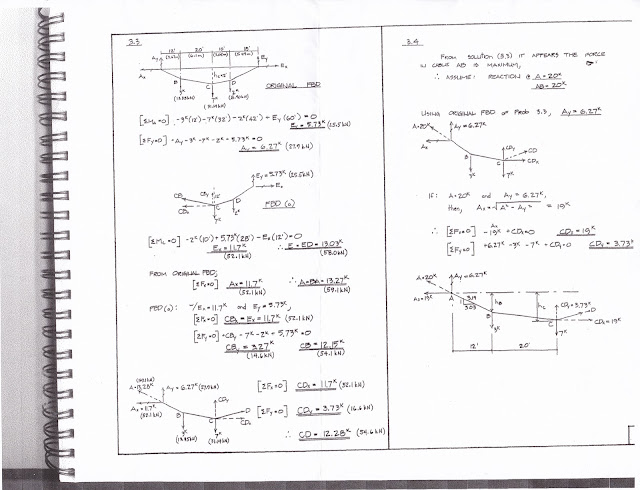 3.3
12' 20' 10' 18'
Ay
Ey
Ax
Ex
B
C
D
3ᴷ
7ᴷ
2ᴷ
ORIGINAL FBD
[ΣMA=0] -3ᴷ(12')-7ᴷ(32')-2ᴷ(42') + Ey(60') = 0
Ey = 5.73ᴷ (25.5kN)
[ΣFy=0] -Ay -3ᴷ -7ᴷ -2ᴷ -5.73ᴷ=0
Ay = 6.27ᴷ (27.9kN)
Ey=5.73ᴷ (25.5kN)
Ex
CBy
12'
CB
CBx
C
D
7ᴷ
2ᴷ
FBD (a)
[ΣMC=0] -2ᴷ(10') + 5.73ᴷ(28') - Ex(12') = 0
Ex = 11.7ᴷ ∴ E = ED = 13.03ᴷ
(52.1kN) (58.0kN)
FROM ORIGINAL FBD;
[ΣFx=0] Ax = 11.7ᴷ ∴ A=BA = 13.27ᴷ
(52.1kN) (59.1kN)
FBD(a): Ex = 11.7ᴷ and Ey = 5.73ᴷ,
[ΣFx=0] CBx = Ex = 11.7ᴷ (52.1kN)
[ΣFy=0] CBy - 7ᴷ - 2ᴷ + 5.73ᴷ = 0
CBy = 3.27ᴷ CB = 12.15ᴷ
(14.6kN) (54.1kN)
A=13.28ᴷ
Ay = 6.27ᴷ (27.9kN)
Ax=11.7ᴷ
(52.1kN)
B
CDy
D
C
CDx
3ᴷ
7ᴷ
[ΣFx=0] CDx = 11.7ᴷ (52.1kN)
[ΣFy=0] CDy = 3.73ᴷ (16.6kN)
∴ CD = 12.28ᴷ (54.6kN)
3.4
FROM SOLUTION (3.3) IT APPEARS THE FORCE
IN CABLE AB IS MAXIMUM,
∴ ASSUME: REACTION @ A = 20ᴷ
AB = 20ᴷ
USING ORIGINAL FBD of Prob 3.3, Ay = 6.27ᴷ
A=20ᴷ
Ay=6.27ᴷ
Ax
B
CDy
CD
C
CDx
3ᴷ
7ᴷ
If: A=20ᴷ and Ay = 6.27ᴷ,
then, Ax = √A² - Ay² = 19ᴷ
∴ [ΣFx=0] -19ᴷ + CDx=0 CDx = 19ᴷ
[ΣFy=0] +6.27ᴷ -3ᴷ -7ᴷ + CDy=0 CDy = 3.73ᴷ
A=20ᴷ
Ay=6.27ᴷ
Ax=19ᴷ
A
hB
hC
B
CDy=3.73ᴷ
D
C
CDx=19ᴷ
3ᴷ
7ᴷ
12' 20'